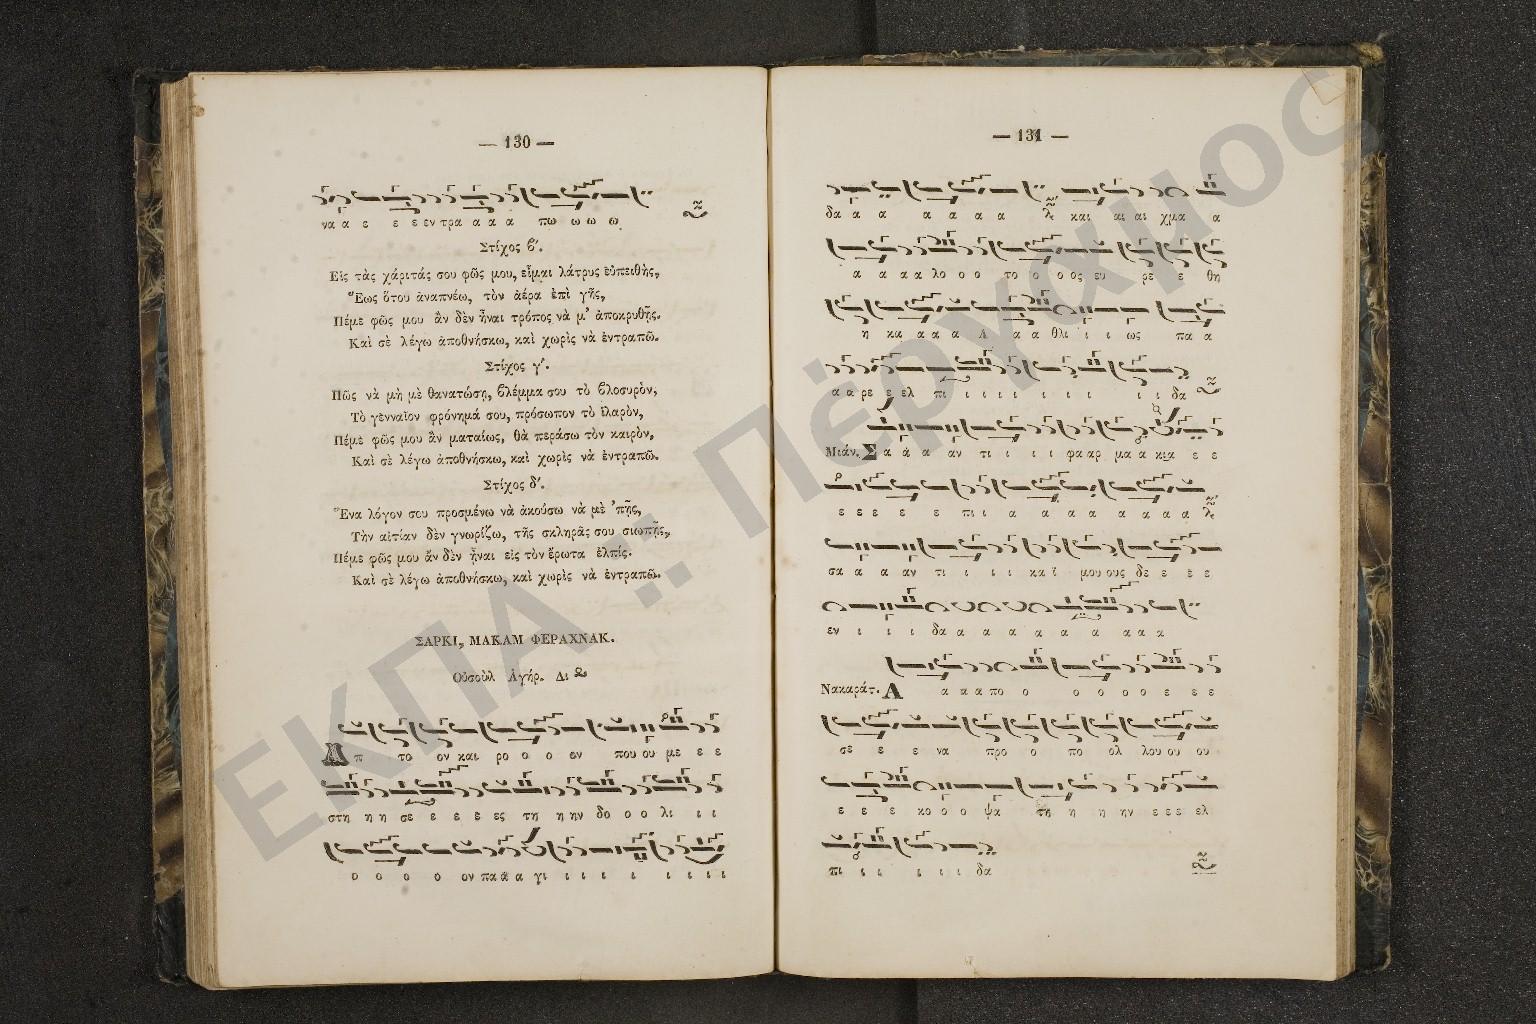 — 130 —
να α ε ε ε εν τρα α α α πω ω ω ω
Στίχος β΄.
Εἰς τὰς χάριτάς σου φῶς μου, εἶμαι λάτρυς εὐπειθὴς,
Ἕως ὅτου ἀναπνέω, τὸν ἀέρα ἐπὶ γῆς,
Πέμε φῶς μου ἂν δὲν ἦναι τρόπος νὰ μ' ἀποκριθῇς.
Καὶ σὲ λέγω ἀποθνήσκω, καὶ χωρὶς νὰ ἐντραπῶ.
Στίχος γ΄.
Πῶς νὰ μὴ μὲ θανατώσῃ, βλέμμα σου τὸ βλοσυρὸν,
Τὸ γενναῖον φρόνημά σου, πρόσωπον τὸ ἱλαρὸν,
Πέμε φῶς μου ἂν ματαίως, θὰ περάσω τὸν καιρὸν,
Καὶ σὲ λέγω ἀποθνήσκω, καὶ χωρὶς νὰ ἐντραπῶ.
Στίχος δ΄.
Ἕνα λόγον σου προσμένω νὰ ἀκούσω νὰ μὲ 'πῇς,
Τὴν αἰτίαν δὲν γνωρίζω, τῆς σκληρᾶς σου σιωπῆς,
Πέμε φῶς μου ἂν δὲν ἦναι εἰς τὸν ἔρωτα ἐλπίς.
Καὶ σὲ λέγω ἀποθνήσκω, καὶ χωρὶς νὰ ἐντραπῶ.
ΣΑΡΚΙ, ΜΑΚΑΜ ΦΕΡΑΧΝΑΚ.
Οὐσοὺλ Ἀγήρ. Δι
Α π το ον και ρο ο ο εν που ου με ε ε
στη η η σε ε ε ε ες τη η ην δο ο ο λι ι ι
ο ο ο ο ον πα α α γι ι ι ι ι ι ι ι ι
— 131 —
δα α α α α α α και αι αι χμα α
α α α α λο ο ο το ο ο ος ευ ρε ε θη
η κα α α α Α α α θλι ι ι ι ως πα α
α α ρε ε ελ πι ι ι ι ι ι ι ι ι ι δα
Μιάν. Σ α ά α αν τι ι ι ι φα αρ μα α κια ε ε
ε ε ε ε ε πι ι α α α α α α α
σα α α αν τι ι ι ι και μου ους δε ε ε ε
εν ι ι ι δα α α α α α α α α
Νακαράτ. Α α α α πο ο ο ο ο ο ε ε ε
σε ε ε να προ ο πο ολ λου ου ου
ε ε ε κο ο ο ψα τη η η ην ε ε ε ελ
πι ι ι ι ι ι δα
ΕΚΠΑ :: Πέργαμος